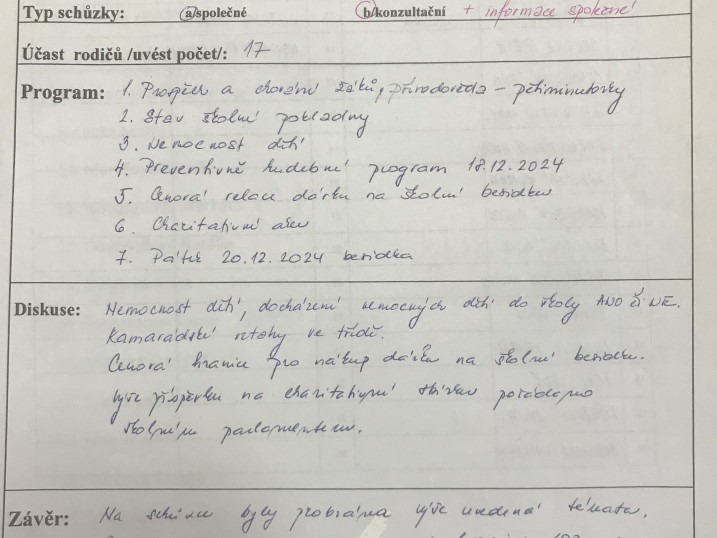 Typ schůzky: a/společné b/konzultační + informace společné
Účast rodičů /uvést počet/: 17
Program: 1. Prospěch a chování žáků, přírodověda – pětiminutovky
2. Stav školní pokladny
3. Nemocnost dětí
4. Preventivně hudební program 18.12.2024
5. Cenová relace dárku na školní besídku
6. Charitativní akce
7. Pátek 20.12.2024 besídka
Diskuse: Nemocnost dětí, docházení nemocných dětí do školy ANO či NE.
Kamarádské vztahy ve třídě.
Cenová hranice pro nákup dárku na školní besídku.
Výše příspěvku na charitativní sbírku pořádanou
školním parlamentem.
Závěr: Na schůzce byly probrána výše uvedená témata.